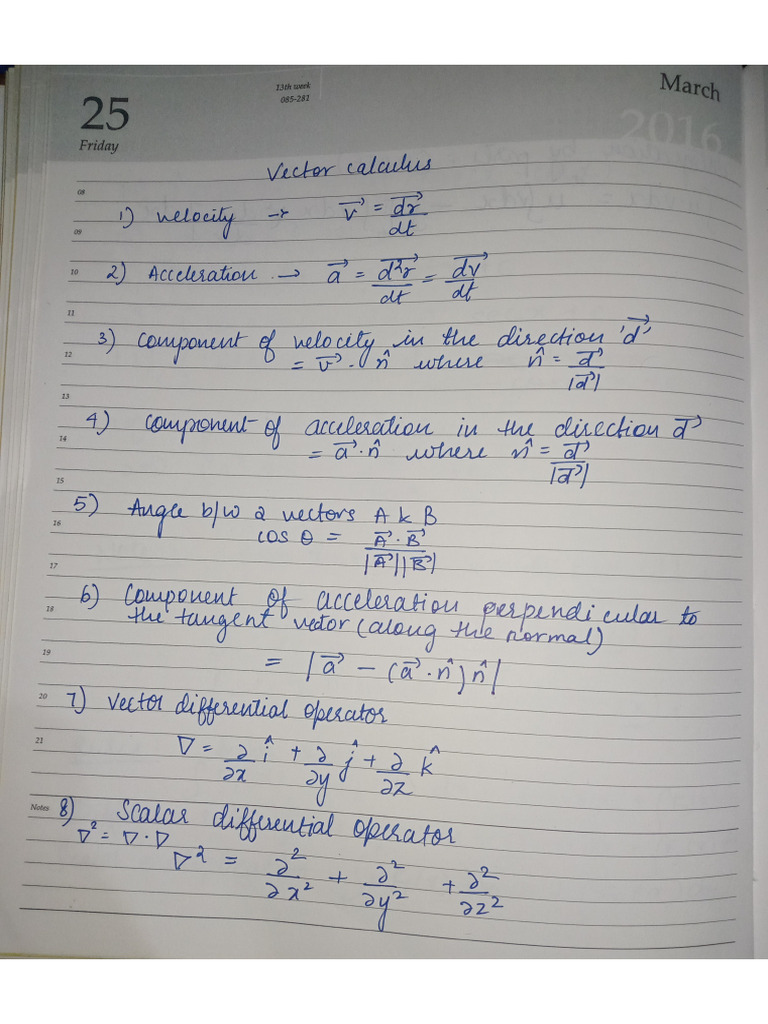 13th week
085-281
25
Friday
March
2016
Vector Calculus
08
1) Velocity → v⃗ = dr⃗/dt
09
10 2) Acceleration → a⃗ = d²r⃗/dt = dv⃗/dt
11
3) Component of velocity in the direction 'd⃗'
12 = v⃗ · n̂ where n̂ = d⃗/|d⃗|
13
4) Component of acceleration in the direction d⃗
14 = a⃗ · n̂ where n̂ = d⃗/|d⃗|
15
5) Angle b/w 2 vectors A & B
16 cos θ = A⃗ · B⃗/|A⃗||B⃗|
17
6) Component of acceleration perpendicular to
18 the tangent vector (along the normal)
19 = |a⃗ - (a⃗ · n̂) n̂|
20 7) Vector differential operator
21 ∇ = ∂/∂x î + ∂/∂y ĵ + ∂/∂z k̂
Notes 8) Scalar differential operator
∇² = ∇ · ∇
∇² = ∂²/∂x² + ∂²/∂y² + ∂²/∂z²